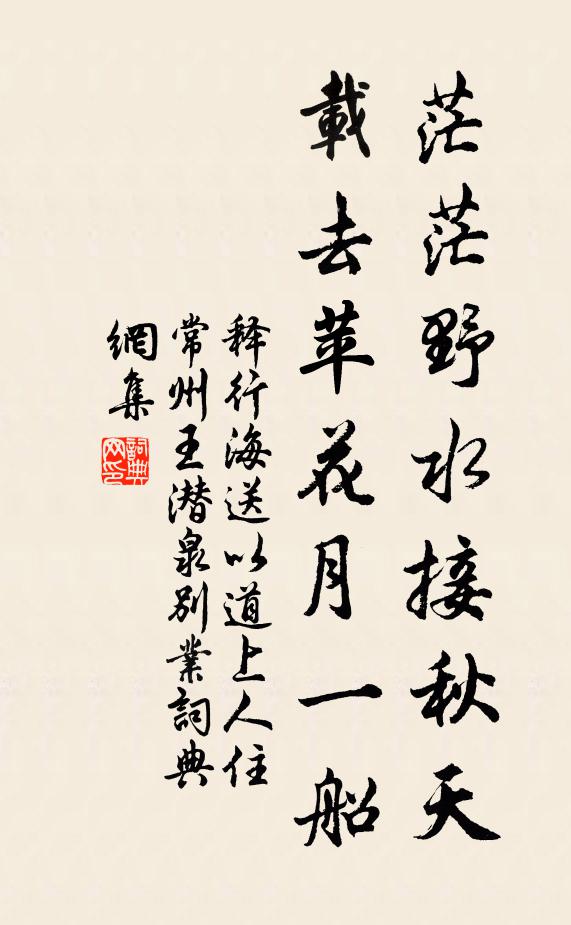 茫茫野水接秋天
載去苹花月一船
释行海送以道上人住
常州王潜泉别業詞典
網集
詞典
网印